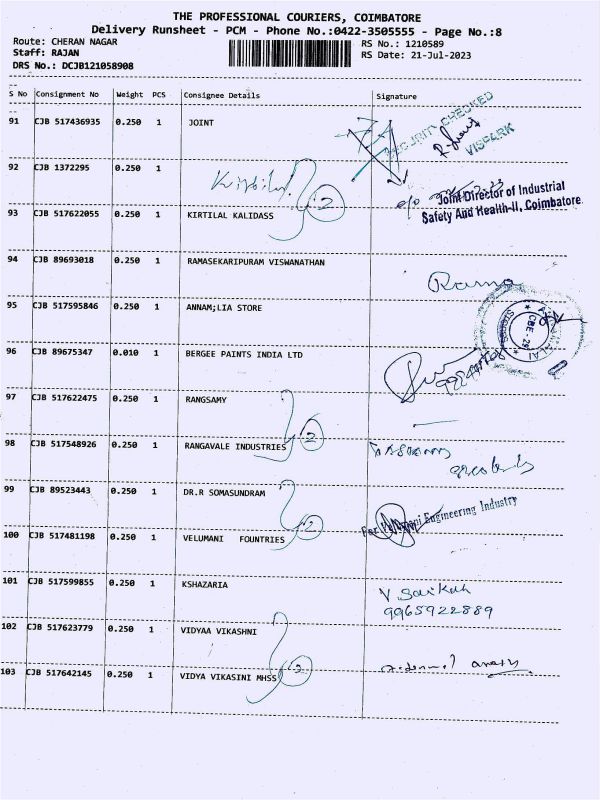 THE PROFESSIONAL COURIERS, COIMBATORE
Delivery Runsheet - PCM - Phone No.:0422-3505555 - Page No.:8
Route: CHERAN NAGAR RS No.: 1210589
Staff: RAJAN RS Date: 21-Jul-2023
DRS No.: DCJB121058908
S No Consignment No Weight PCS Consignee Details Signature
91 CJB 517436935 0.250 1 JOINT
SECURITY CHECKED
VISPARK
92 CJB 1372295 0.250 1
Kirtilal 2
Joint Director of Industrial
Safety And Health-II, Coimbatore.
93 CJB 517622055 0.250 1 KIRTILAL KALIDASS
94 CJB 89693018 0.250 1 RAMASEKARIPURAM VISWANATHAN
Rama
95 CJB 517595846 0.250 1 ANNAM;LIA STORE
STORES * CBE - 29 *
96 CJB 89675347 0.010 1 BERGEE PAINTS INDIA LTD
97 CJB 517622475 0.250 1 RANGSAMY
2
98 CJB 517548926 0.250 1 RANGAVALE INDUSTRIES
99 CJB 89523443 0.250 1 DR.R SOMASUNDRAM
2
For Engineering Industry
100 CJB 517481198 0.250 1 VELUMANI FOUNTRIES
101 CJB 517599855 0.250 1 KSHAZARIA
V
9965922889
102 CJB 517623779 0.250 1 VIDYAA VIKASHNI
2
103 CJB 517642145 0.250 1 VIDYA VIKASINI MHSS